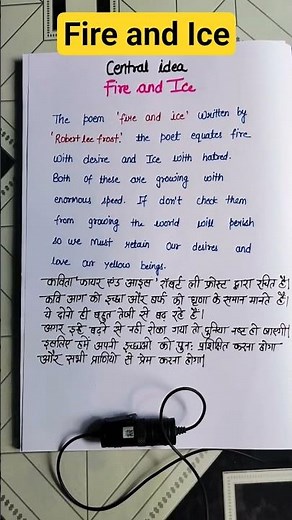 Fire and Ice
Central idea
Fire and Ice
The poem 'fire and ice' written by
'Robert lee frost.' the poet equates fire
with desire and Ice with hatred.
Both of these are growing with
enormous speed. If don't check them
from growing the world will perish
so we must retain our desires and
love our yellow beings.
कविता फायर एंड आइस रॉबर्ट ली फ्रोस्ट द्वारा रचित है।
कवि आग को इच्छा और बर्फ को घृणा के समान मानते हैं।
ये दोनों ही बहुत तेजी से बढ़ रहे हैं।
अगर इन्हें बढ़ने से नहीं रोका गया तो दुनिया नष्ट हो जाएगी
इसलिए हमें अपनी इच्छाओं को पुनः प्रशिक्षित करना होगा
और सभी प्राणियों से प्रेम करना होगा।